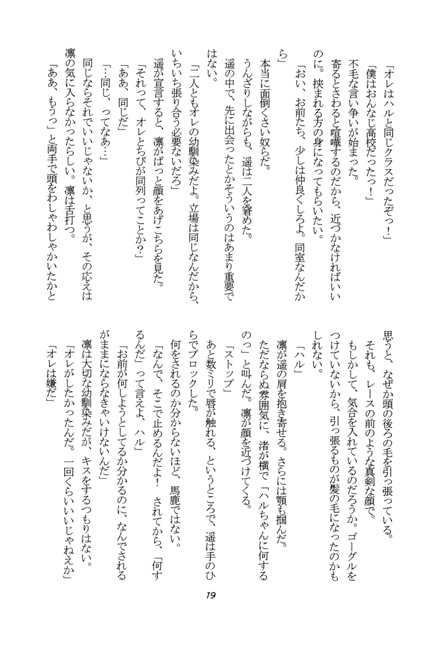 「オレはハルと同じクラスだったぞっ！」
「僕はおんなじ高校だったっ！」
不毛な言い争いが始まった。
寄るとさわると喧嘩するのだから、近づかなければいい
のに。挟まれる方の身になってもらいたい。
「おい、お前たち、少しは仲良くしろよ。同室なんだか
ら」
本当に面倒くさい奴らだ。
うんざりしながらも、遥は二人を窘めた。
遥の中で、先に出会ったとかそういうのはあまり重要で
はない。
「二人ともオレの幼馴染みだよ。立場は同じなんだから、
いちいち張り合う必要ないだろ」
遥が宣言すると、凛がぱっと顔をあげこちらを見た。
「それって、オレとちびが同列ってことか？」
「ああ、同じだ」
「…同じ、ってなあ…」
同じならそれでいいじゃないか、と思うが、その応えは
凛の気に入らなかったらしい。凛は舌打つ。
「ああ、もうっ」と両手で頭をわしゃわしゃかいたかと
思うと、なぜか頭の後ろの毛を引っ張っている。
それも、レースの前のような真剣な顔で。
もしかして、気合を入れているのだろうか。ゴーグルを
つけていないから、引っ張るものが髪の毛になったのかも
しれない。
「ハル」
凛が遥の肩を抱き寄せる。さらには顎も掴んだ。
ただならぬ雰囲気に、渚が横で「ハルちゃんに何する
のっ」と叫んだ。凛が顔を近づけてくる。
「ストップ」
あと数ミリで唇が触れる、というところで、遥は手のひ
らでブロックした。
何をされるのか分からないほど、馬鹿ではない。
「なんで、そこで止めるんだよ！　されてから、「何す
るんだ」って言えよ、ハル」
「お前が何しようとしてるか分かるのに、なんでされる
がままにならなきゃいけないんだ」
凛は大切な幼馴染みだが、キスをするつもりはない。
「オレがしたかったんだ。一回くらいいいじゃねえか」
「オレは嫌だ」
19